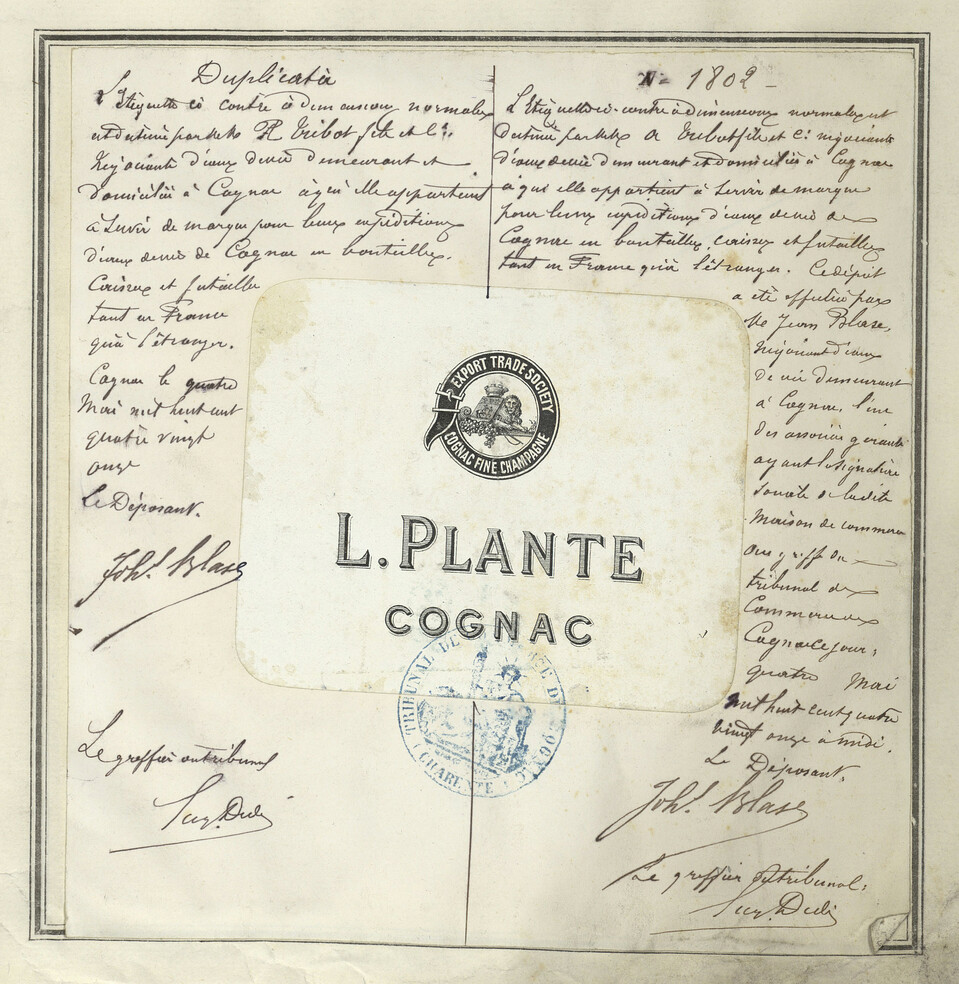 Duplicata
L'Etiquette ci contre à dimensions normales
est destinée par MM. A Tribot fils et Cie.
Négociants d'eaux de vie demeurant et
domiciliés à Cognac à qui elle appartient
à servir de marque pour leurs expéditions
d'eaux de vie de Cognac en bouteilles.
Caisses et futailles
tant en France
qu'à l'étranger.
Cognac le quatre
Mai mil huit cent
quatre vingt
onze
Le Déposant.
Joh. Blase
Le greffier du tribunal
N° 1802
L'Etiquette ci-contre à dimensions normales est
destinée par MM. A Tribot fils et Cie négociants
d'eaux de vie demeurant et domiciliés à Cognac
à qui elle appartient à servir de marque
pour leurs expéditions d'eaux de vie de
Cognac en bouteilles, caisses et futailles
tant en France qu'à l'étranger. Ce dépôt
a été effectué par
Mr Jean Blase,
négociant d'eaux
de vie demeurant
à Cognac, l'un
des associés gérants
ayant la signature
sociale de la dite
Maison de commerce
au greffe du
tribunal de
Commerce de
Cognac ce jour,
quatre Mai
mil huit cent quatre
vingt onze à midi.
Le Déposant.
Joh. Blase
Le greffier du tribunal:
EXPORT TRADE SOCIETY
COGNAC FINE CHAMPAGNE
L. PLANTE
COGNAC
TRIBUNAL DE COMMERCE DE COGNAC
(CHARENTE)